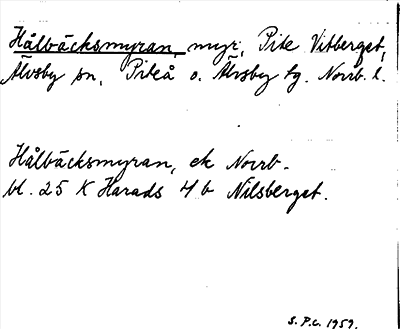 Hålbäcksmyran, myr, Pite Vitberget,
Älvsby sn, Piteå o. Älvsby tg. Norrb. l.
Hålbäcksmyran, ek Norrb.
bl. 25 K Harads 4 b Nilsberget.
S. P.C. 1959.